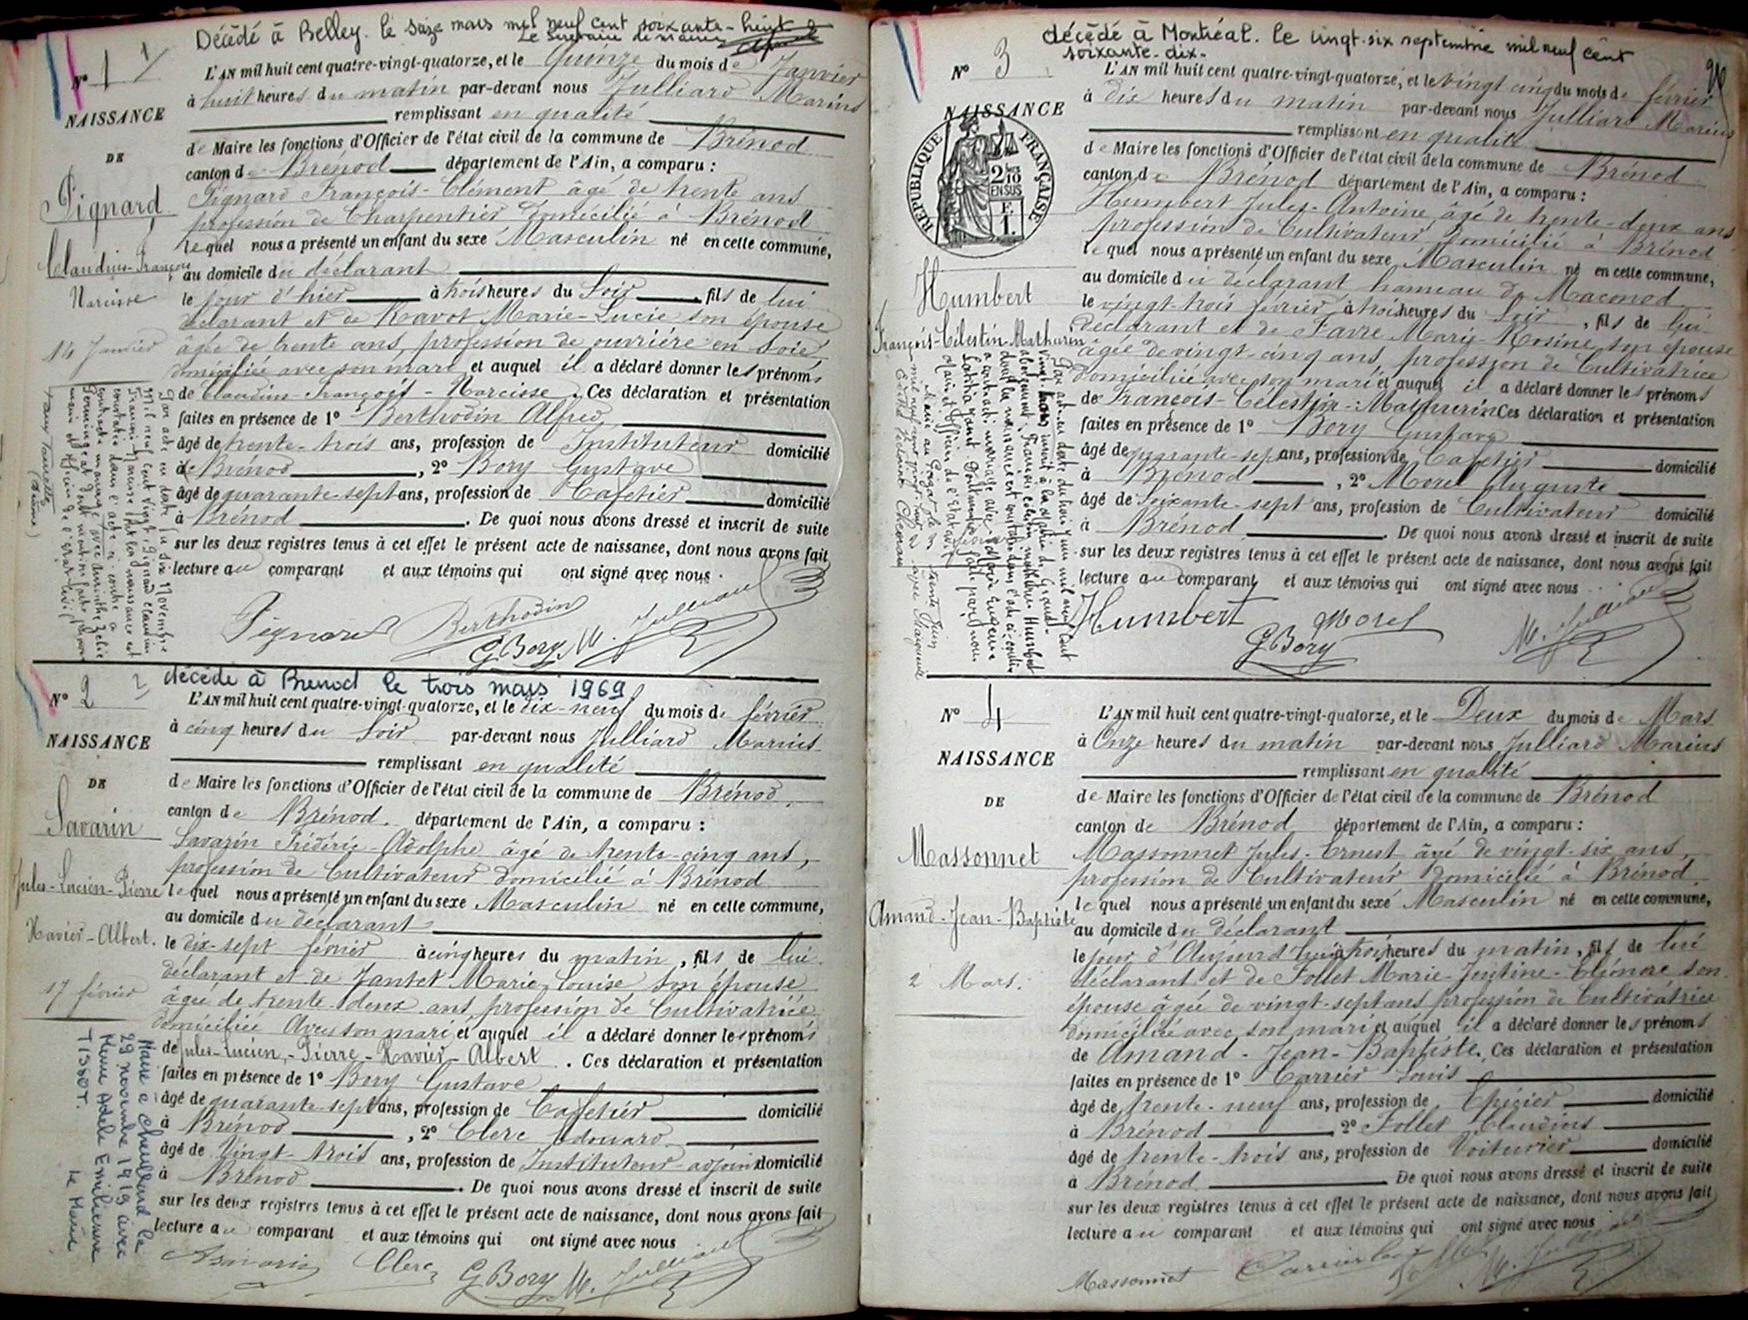 Décédé à Belley. le seize mars mil neuf cent soixante-huit
N° 1
L'AN mil huit cent quatre-vingt-quatorze, et le Quinze du mois de Janvier
à huit heures du matin par-devant nous Julliard Marius
remplissant en qualité
de Maire les fonctions d'Officier de l'état civil de la commune de Brénod
canton de Brénod département de l'Ain, a comparu :
Pignard François-Clément âgé de trente ans
profession de Charpentier domicilié à Brénod
lequel nous a présenté un enfant du sexe Masculin né en cette commune,
au domicile du déclarant
le jour d'hier à trois heures du Soir, fils de lui
déclarant et de Ravot Marie-Lucie son épouse
âgée de trente ans, profession de ouvrière en soie
domiciliée avec son mari et auquel il a déclaré donner les prénoms
de Claudius-François-Narcisse. Ces déclaration et présentation
faites en présence de 1° Berthodin Alfred
âgé de trente-trois ans, profession de Instituteur domicilié
à Brénod, 2° Bory Gustave
âgé de quarante-sept ans, profession de Cafetier domicilié
à Brénod. De quoi nous avons dressé et inscrit de suite
sur les deux registres tenus à cet effet le présent acte de naissance, dont nous avons fait
lecture au comparant et aux témoins qui ont signé avec nous.
Pignard Berthodin
G Bory M. Julliard
NAISSANCE
DE
Pignard
Claudius-François
Narcisse
14 Janvier
N° 2
décédé à Brénod le trois mars 1969
L'AN mil huit cent quatre-vingt-quatorze, et le dix-neuf du mois de février
à cinq heures du Soir par-devant nous Julliard Marius
remplissant en qualité
de Maire les fonctions d'Officier de l'état civil de la commune de Brénod
canton de Brénod. département de l'Ain, a comparu :
Savarin Frédéric-Adolphe âgé de trente-cinq ans,
profession de Cultivateur domicilié à Brénod
lequel nous a présenté un enfant du sexe Masculin né en cette commune,
au domicile du déclarant
le dix-sept février à cinq heures du matin, fils de lui
déclarant et de Jantet Marie Louise son épouse
âgée de trente-deux ans, profession de Cultivatrice
domiciliée avec son mari et auquel il a déclaré donner les prénoms
de Jules-Lucien-Pierre-Xavier-Albert. Ces déclaration et présentation
faites en présence de 1° Bory Gustave
âgé de quarante-sept ans, profession de Cafetier domicilié
à Brénod, 2° Clerc Edouard
âgé de Vingt-trois ans, profession de Instituteur-adjoint domicilié
à Brénod. De quoi nous avons dressé et inscrit de suite
sur les deux registres tenus à cet effet le présent acte de naissance, dont nous avons fait
lecture au comparant et aux témoins qui ont signé avec nous
Savarin Clerc G Bory M. Julliard
NAISSANCE
DE
Savarin
Jules-Lucien-Pierre
Xavier-Albert.
17 février
Marié à Cheillard le
29 novembre 1919 avec
Marie Adèle Emilienne
TISSOT. Le Maire
décédé à Montréal. le vingt-six septembre mil neuf cent
soixante-dix.
N° 3
L'AN mil huit cent quatre-vingt-quatorze, et le vingt cinq du mois de février
à dix heures du matin par-devant nous Julliard Marius
remplissant en qualité
de Maire les fonctions d'Officier de l'état civil de la commune de Brénod
canton de Brénod département de l'Ain, a comparu :
Humbert Jules-Antoine, âgé de trente-deux ans
profession de Cultivateur domicilié à Brénod
lequel nous a présenté un enfant du sexe Masculin né en cette commune,
au domicile du déclarant hameau de Maconod
le vingt-trois février à trois heures du Soir, fils de lui
déclarant et de Favre Marie-Rosine son épouse
âgée de vingt-cinq ans, profession de Cultivatrice
domiciliée avec son mari et auquel il a déclaré donner les prénoms
de François-Célestin-Mathurin Ces déclaration et présentation
faites en présence de 1° Bory Gustave
âgé de quarante-sept ans, profession de Cafetier domicilié
à Brénod, 2° Morel Auguste
âgé de soixante-sept ans, profession de Cultivateur domicilié
à Brénod. De quoi nous avons dressé et inscrit de suite
sur les deux registres tenus à cet effet le présent acte de naissance, dont nous avons fait
lecture au comparant et aux témoins qui ont signé avec nous
Humbert Morel
G Bory M. Julliard
NAISSANCE
RÉPUBLIQUE FRANÇAISE
2/10 EN SUS
E. 1.
Humbert
François-Célestin-Mathurin
N° 4
L'AN mil huit cent quatre-vingt-quatorze, et le Deux du mois de Mars
à Onze heures du matin par-devant nous Julliard Marius
remplissant en qualité
de Maire les fonctions d'Officier de l'état civil de la commune de Brénod
canton de Brénod département de l'Ain, a comparu :
Massonnet Jules-Ernest âgé de vingt-six ans,
profession de Cultivateur domicilié à Brénod
lequel nous a présenté un enfant du sexe Masculin né en cette commune,
au domicile du déclarant
le jour d'Aujourd'hui à trois heures du matin, fils de lui
déclarant et de Follet Marie-Justine-Eléonore son
épouse âgée de vingt-sept ans profession de Cultivatrice
domiciliée avec son mari et auquel il a déclaré donner les prénoms
de Amand-Jean-Baptiste. Ces déclaration et présentation
faites en présence de 1° Carrier Louis
âgé de trente-neuf ans, profession de Epicier domicilié
à Brénod 2° Follet Claudius
âgé de trente-trois ans, profession de Voiturier domicilié
à Brénod De quoi nous avons dressé et inscrit de suite
sur les deux registres tenus à cet effet le présent acte de naissance, dont nous avons fait
lecture au comparant et aux témoins qui ont signé avec nous
Massonnet Carrier M. Julliard
NAISSANCE
DE
Massonnet
Amand-Jean-Baptiste
2 Mars.